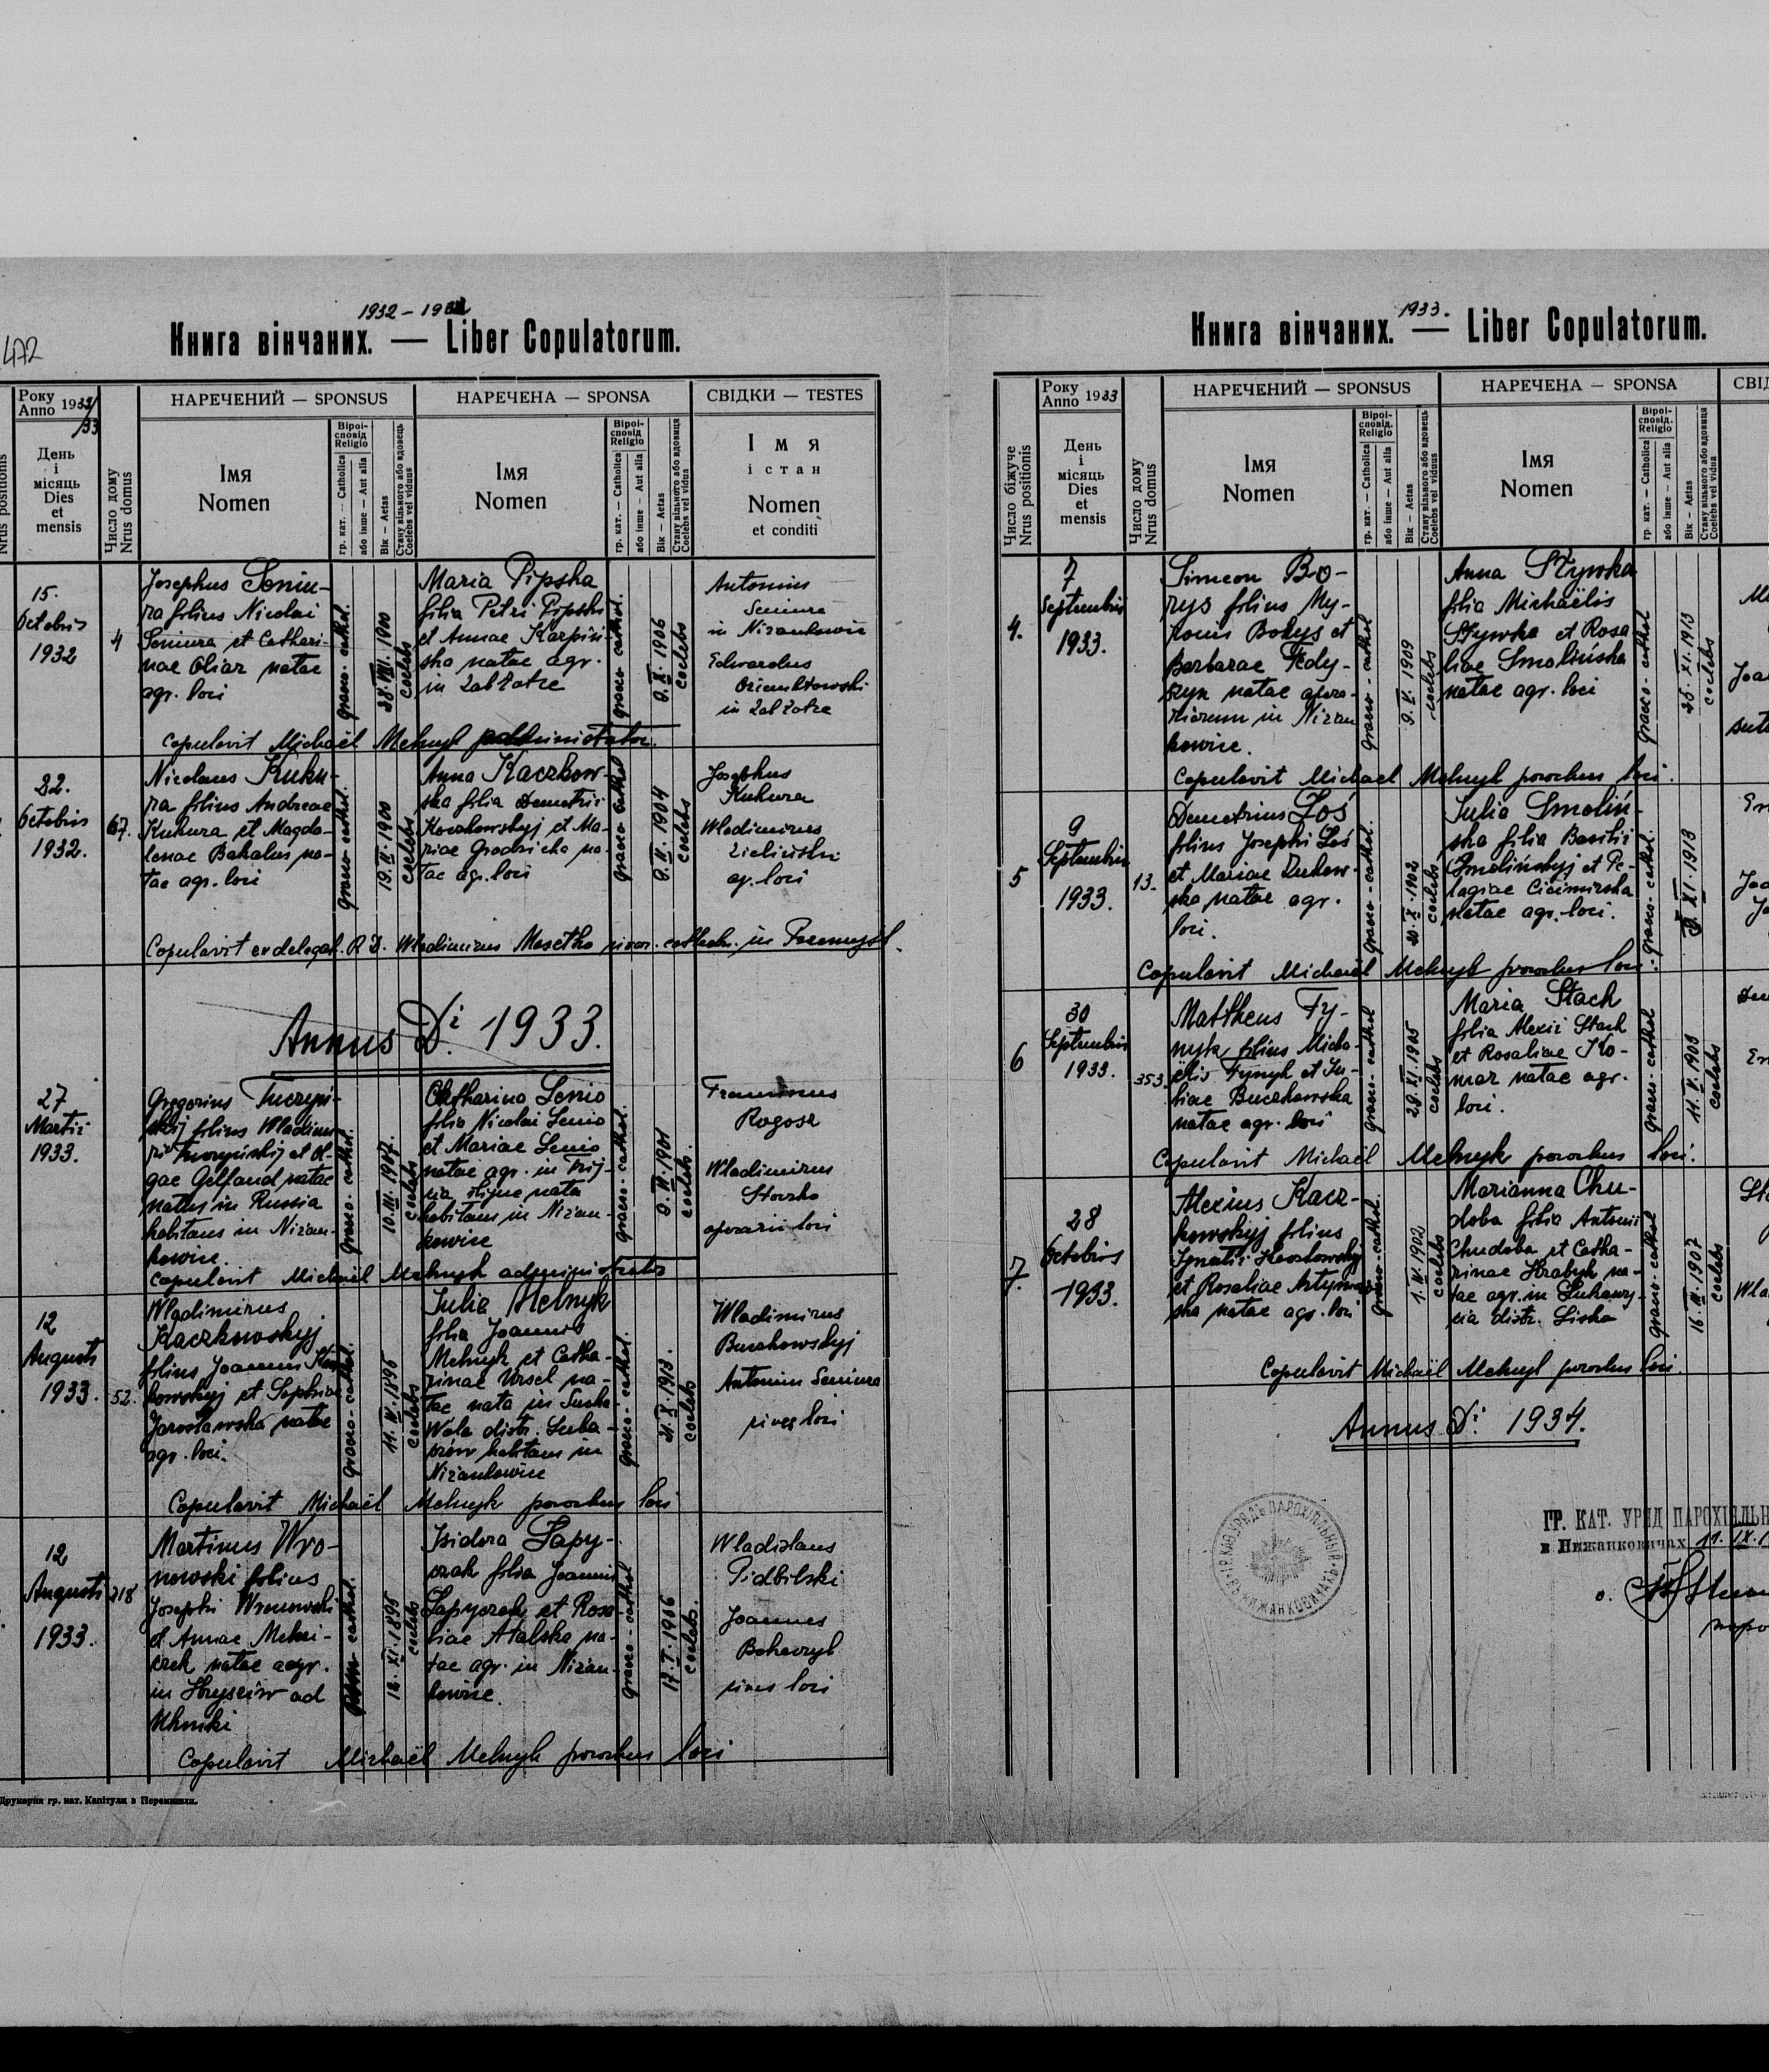 1932 – 1933
Книга вінчаних. — Liber Copulatorum.
472
Року
Anno 1932/33
НАРЕЧЕНИЙ — SPONSUS
НАРЕЧЕНА — SPONSA
СВІДКИ — TESTES
Nrus positionis
День
і
місяць
Dies
et
mensis
Число дому
Nrus domus
Імя
Nomen
Віроі-
сповід
Religio
гр. кат. — Catholica
або інше — Aut alia
Вік — Aetas
Стану вільного або вдовець
Coelebs vel viduus
Імя
Nomen
Віроі-
сповід
Religio
гр. кат. — Catholica
або інше — Aut alia
Вік — Aetas
Стану вільного або вдовиця
Coelebs vel vidua
Імя
і стан
Nomen
et conditi
15.
Octobris
1932
4
Josephus Seniu-
ra filius Nicolai
Seniura et Cathari-
nae Oliar natae
agr. loci
graeco-cathol.
28.VIII.1900
coelebs
Maria Pipska
filia Petri Pipski
et Annae Karpiń-
ska natae agr.
in Zabłotce
graeco-cathol.
9.XI.1906
coelebs
Antonius
Seniura
in Nizankowice
Edwardus
in Zabłotce
Copulavit Michaël Melnyk administrator.
22.
Octobris
1932.
67.
Nicolaus Kuku-
ra filius Andreae
Kukura et Magda-
lenae Bakalus na-
tae agr. loci
graeco-cathol.
19.II.1900
coelebs
Anna Kaczkow-
ska filia Demetrii
Kaczkowskyj et Ma-
riae Grodzicka na-
tae agr. loci
graeco-cathol
9.II.1904
coelebs
Josephus
Kukura
Wladimirus
Zieliński
ag. loci
Copulavit ex delegat. R. D. Wladimirus in Przemyśl.
Annus Di 1933.
27
Martii
1933.
Gregorius Tuczyń-
skij filius Wladimi-
ri Tuczyńskij et Ol-
gae Gelfand natae
natus in Russia
habitans in Nizan-
kowice.
graeco-cathol.
10.III.1907.
coelebs
Catharina Senio
filia Nicolai Senio
et Mariae Senio
natae agr. in
habitans in Nizan-
kowice
graeco-cathol.
9.II.1901
coelebs.
Franciscus
Rogosz
Wladimirus
loci
Copulavit Michaël Melnyk administrator
12
Augusti
1933.
52.
Wladimirus
Kaczkowskyj
filius Joannis Kacz-
kowskyj et Sophiae
Jarosławska natae
agr. loci.
graeco-cathol.
11.IV.1895
coelebs
Julia Melnyk
filia Joannis
Melnyk et Catha-
rinae Ursel na-
tae nata in Sucha
Wola distr. Luba-
czów habitans in
Nizankowice
graeco-cathol.
21.X.1913.
coelebs
Wladimirus
Buczkowskyj
Antonius Seniura
cives loci
Copulavit Michaël Melnyk parochus loci
12
Augusti
1933.
218
Martinus Wro-
nowski filius
Josephi Wronowski
et Annae
natae agr.
in ad
12.XI.1895
coelebs
Isidora Łapy-
czak filia Joannis
Łapyczak et Rosa-
liae Atalska na-
tae agr. in Nizan-
kowice.
graeco-cathol
17.I.1906
coelebs.
Wladislaus
Pidbilski
Joannes
cives loci
Copulavit Michaël Melnyk parochus loci
Друкарня гр. кат. Капітули в Перемишли.
1933.
Книга вінчаних. — Liber Copulatorum.
Року
Anno 1933
НАРЕЧЕНИЙ — SPONSUS
НАРЕЧЕНА — SPONSA
Число біжуче
Nrus positionis
День
і
місяць
Dies
et
mensis
Число дому
Nrus domus
Імя
Nomen
Віроі-
сповід.
Religio
гр. кат. — Catholica
або інше — Aut alia
Вік — Aetas
Стану вільного або вдовець
Coelebs vel viduus
Імя
Nomen
Віроі-
сповід.
Religio
гр. кат. — Catholica
або інше — Aut alia
Вік — Aetas
Стану вільного або вдовиця
Coelebs vel vidua
4.
7
Septembris
1933.
Simeon Bo-
rys filius My-
ronis Borys et
Barbarae Fedy-
szyn natae
in Nizan
kowice.
graeco-cathol
9.V.1909
coelebs
Anna Szywka
filia Michaëlis
Szywka et Rosa
liae Smolińska
natae agr. loci
graeco-cathol
25.XI.1913
coelebs
Copulavit Michael Melnyk parochus loci.
5
9
Septembris
1933.
13.
Demetrius Łoś
filius Josephi Łoś
et Mariae Żukow-
ska natae agr.
loci.
graeco-cathol.
20.X.1902
coelebs
Julia Smoliń-
ska filia Basilii
Smolińskyj et Pe-
lagiae Cicimirska
natae agr. loci.
graeco-cathol.
Copulavit Michaël Melnyk parochus loci.
6
30
Septembris
1933.
353.
Mattheus Ty-
nyk filius Micha-
ëlis Tynyk et Ju-
liae Buczkowska
natae agr. loci
graeco-cathol
28.XI.1905
coelebs
Maria Stach
filia Alexii Stach
et Rosaliae Ko-
mar natae agr.
loci.
graeco-cathol
11.V.1903
coelebs
Copulavit Michaël Melnyk parochus loci.
7.
28
Octobris
1933.
Alexius Kacz-
kowskyj filius
Ignatii Kaczkowskyj
et Rosaliae Artymow-
ska natae agr. loci
graeco-cathol.
1.IV.1902
coelebs
Marianna Chu-
doba filia Antonii
Chudoba et Catha-
rinae Hrabyk na-
tae agr. in
distr. Lisko
graeco-cathol
16.III.1907
coelebs
Copulavit Michaël Melnyk parochus loci.
Annus Di 1934.
ГР. КАТ. УРЯД ПАРОХІЯЛЬН
в Нижанковичах 11.IX.1
о.